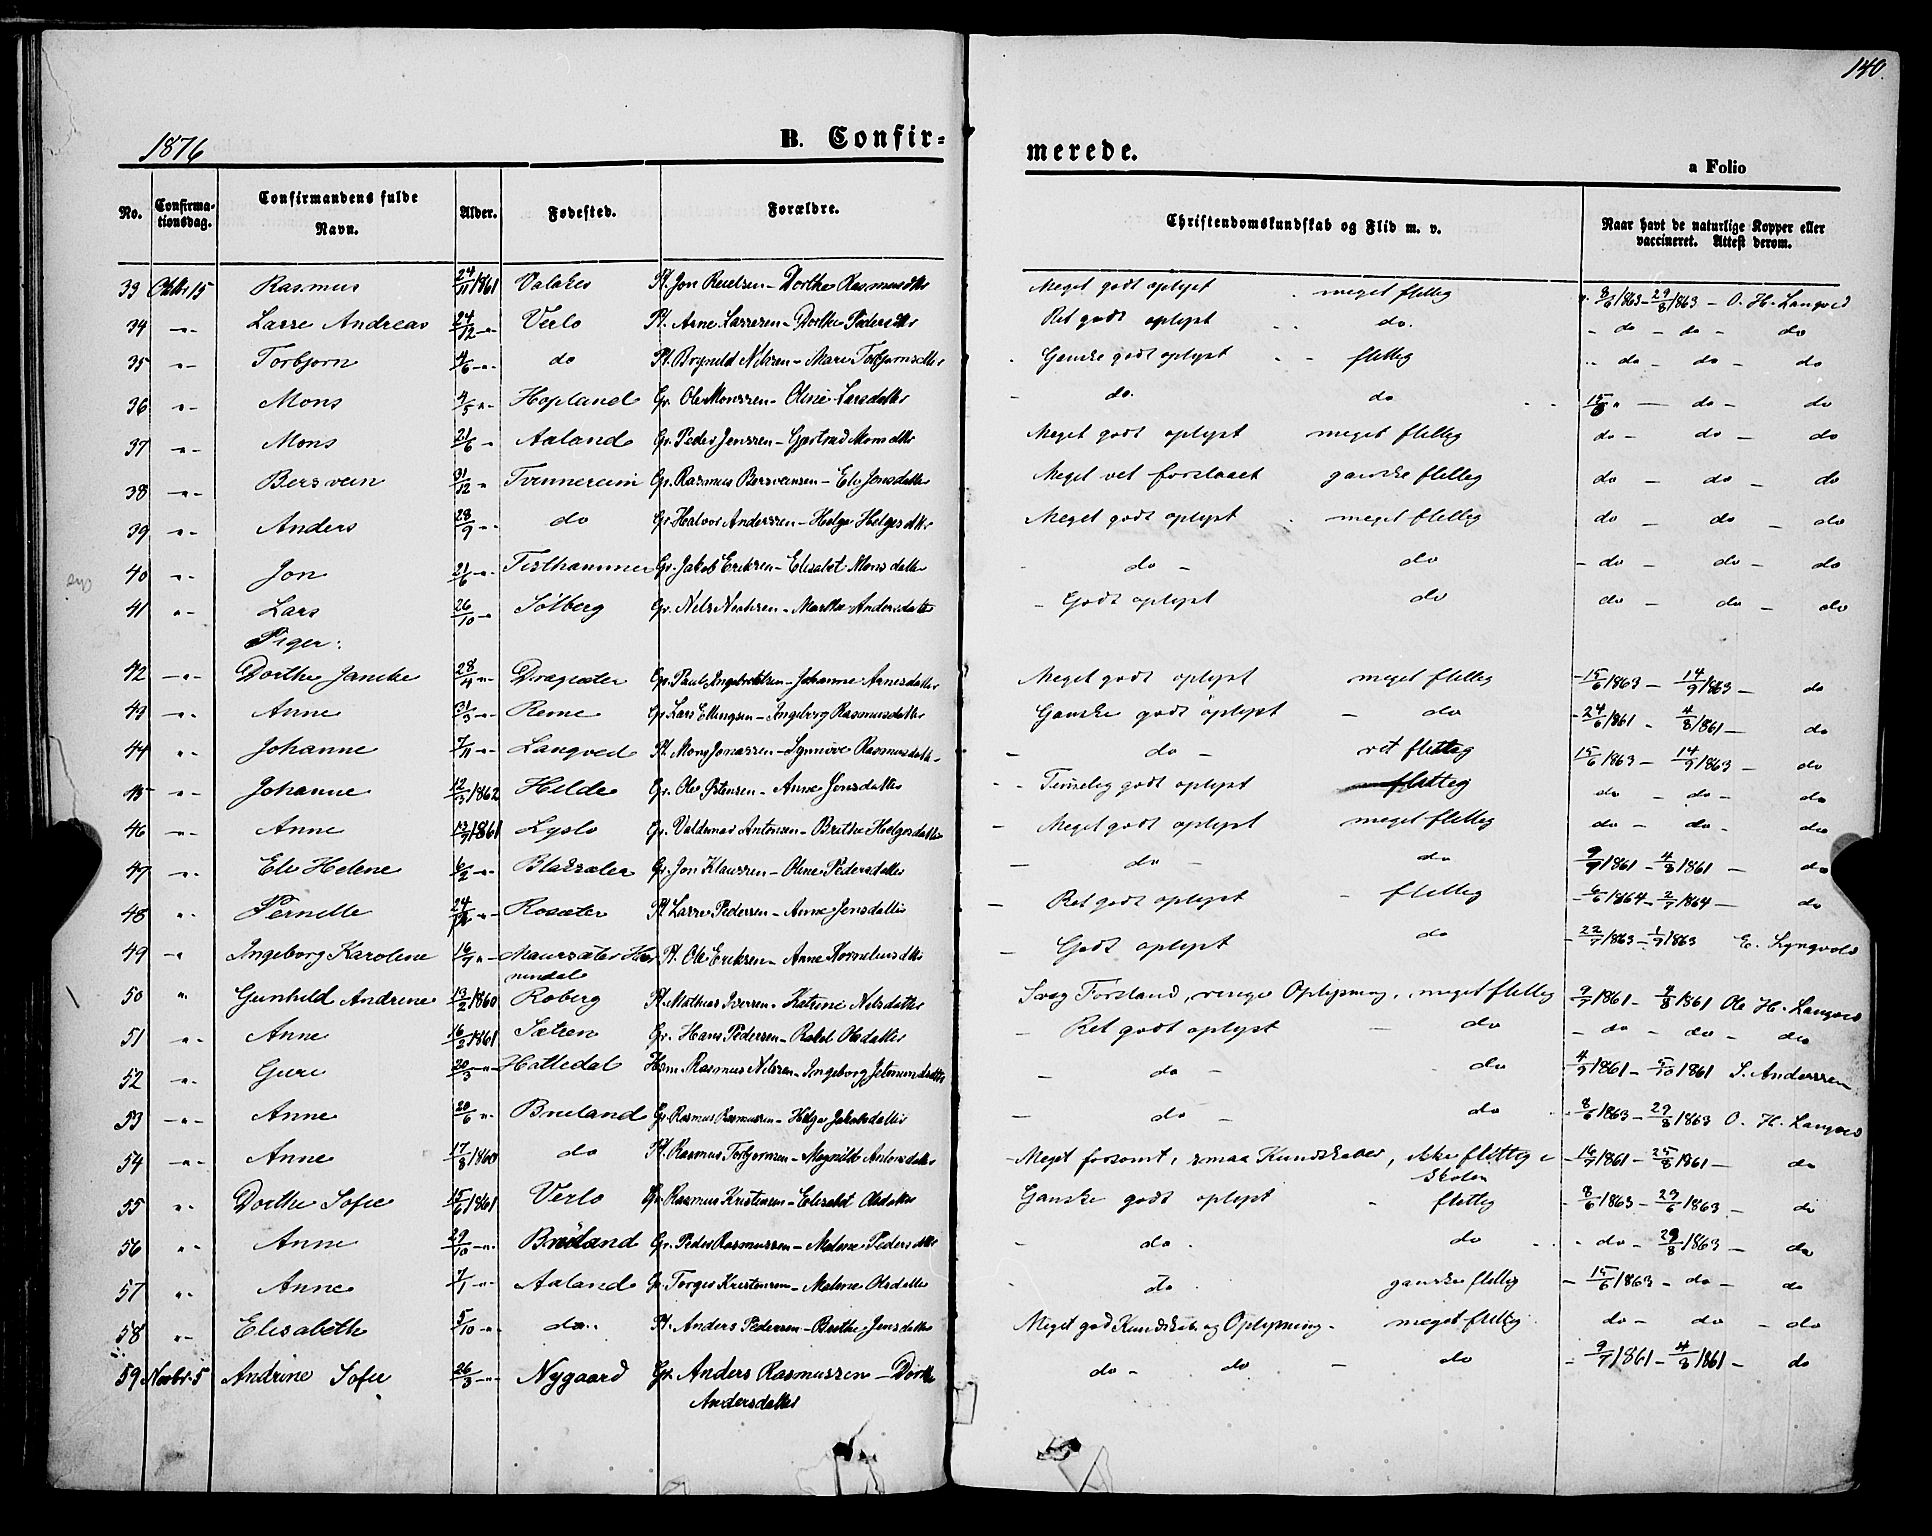 140.
1876
B. Confir-
merede.
a Folio
No. Confirma-tionsdag. Confirmandens fulde Navn. Alder. Fødested. Forældre. Christendomskundskab og Flid m. v. Naar havt de naturlige Kopper eller vaccineret. Attest derom.
33 Oktbr 15 Rasmus 24/11 1861 Pl. Jon - Dorthe Rasmusdtr Meget godt oplyst meget flittig 8/6 1863 - 29/8 1863 - O. H. Langved
34 -"- Lasse Andreas 24/12 -"- Verlo Pl. Arne Lassesen - Dorthe Pedersdtr Ret godt oplyst do. - do - do - do
35 -"- Torbjørn 4/6 -"- do Pl. Brynild Nilsen - Mari Torbjørnsdtr Ganske godt oplyst flittig do - do - do
36 -"- Mons 4/5 -"- Hopland Gr. Ole Monssen - Oline Larsdatter do. do 15/6 " - do - do
37 -"- Mons 21/6 -"- Aaland Gr. Peder Jenssen - Gjertrud Monsdtr Meget godt oplyst meget flittig do - do - do
38 -"- Bersvein 31/12 " Tvinnereim Gr. Rasmus Bersveinsen - Eli Jonsdatter Meget vel forstaaet ganske flittig do - do - do
39 -"- Anders 28/9 -"- do Gr. Halvor Anderssen - Helge Helgesdtr Meget godt oplyst meget flittig do - do - do
40 -"- Jon 21/6 -"- Tisthammer Gr. Jakob Eriksen - Elisabet Monsdatter do - do - do do - do
41 -"- Lars 26/10 -"- Solberg Gr. Nils - Marthe Andersdatter - Godt oplyst do do - do - do
Piger:
42 -"- Dorthe Jancke 28/4 -"- Dragsæter Gr. Paul Ingebrigtsen - Johanne Arnesdatter Meget godt oplyst meget flittig - 15/6 1863 - 14/9 1863 - do
43 -"- Anne 31/3 -"- Reme Gr. Lars Ellingsen - Ingeborg Rasmusdatter Ganske godt oplyst - do - 24/6 1861 - 4/8 1861 - do
44 -"- Johanne 7/11 -"- Langved Pl. Mons Jonassen - Synnøve Rasmusdatter - do - ret flittig 15/6 1863 - 14/9 1863 - do
45 -"- Johanne 12/3 1862 Hilde Gr. Ole - Anne Jonsdatter Temelig godt oplyst flittig do - do - do
46 -"- Anne 13/7 1861 Lyslo Gr. Valdemar Antonsen - Brithe Helgesdatter - Meget godt oplyst meget flittig do - do - do
47 -"- Eli Helene 6/2 -"- Gr. Jon Klaussen - Oline Pedersdatter - do - do 9/7 1861 - 4/8 1861 - do
48 -"- Pernille 24/ -"- Rosæter Pl. Lasse Pedersen - Anne Jensdatter - Ret godt oplyst - flittig - 6/6 1864 - 2/7 1864 - do
49 -" Ingeborg Karoline 16/7 -"- Maursæter Hor-nindal Pl. Ole Eriksen - Anne Korneliusdtr - Godt oplyst do - 22/7 1863 - 1/7 1863 E. Lyngvold
50 " Gunhild Andrine 13/2 1860 Roberg Pl. Mathias Iversen - Katrine Nilsdatter Svag Forstand, ringe Oplysning, meget flittig 9/7 1861 - 4/8 1861 Ole H. Langved
51 -"- Anne 16/2 1861 Sætren Gr. Hans Pedersen - Rakel Olsdatter - Ret godt oplyst - do - do - do - do
52 -"- Guri 20/3 -"- Hattedal Hsm. Rasmus Nilsen - Ingeborg Jetmundsdatter - do - do 4/9 1861 - 5/10 1861 S. Anderssen
53 -"- Anne 20/6 -"- Brieland Gr. Rasmus Rasmussen - Helge Jakobsdatter - do - do 8/6 1863 - 29/8 1863 O. H. Langved
54 -"- Anne 17/8 1860 do Pl. Rasmus Torbjørnsen - Magnild Antonsdatter - Meget forsømt, smaa Kundskaber, ikke flittig i Skolen - 16/7 1861 - 25/8 1861 - do
55 -"- Dorthe Sofie 15/6 1861 Verlo Gr. Rasmus Kristensen - Elisabet Olsdatter Ganske godt oplyst - flittig - 8/6 1863 - 23/6 1863 - do
56 -"- Anne 29/10 -"- Brieland Gr. Peder Rasmussen - Malene Pedersdtr - do. do - do - 29/8 1863 - do
57 -"- Anne 7/1 -"- Aaland Gr. Torger Kristensen - Malene Olsdatter - do ganske flittig - 15/6 1863 - do - do
58 -"- Elisabeth 5/10 -"- do Pl. Anders Pedersen - Brithe Jensdatter Meget god Kundskab og Oplysning - meget flittig do - do - do
59 Novbr. 5 Andrine Sofie 26/3 -"- Nygaard Gr. Anders Rasmussen - Dorthe Andersdatter do - do - do - 9/7 1861 - 4/8 1861 - do